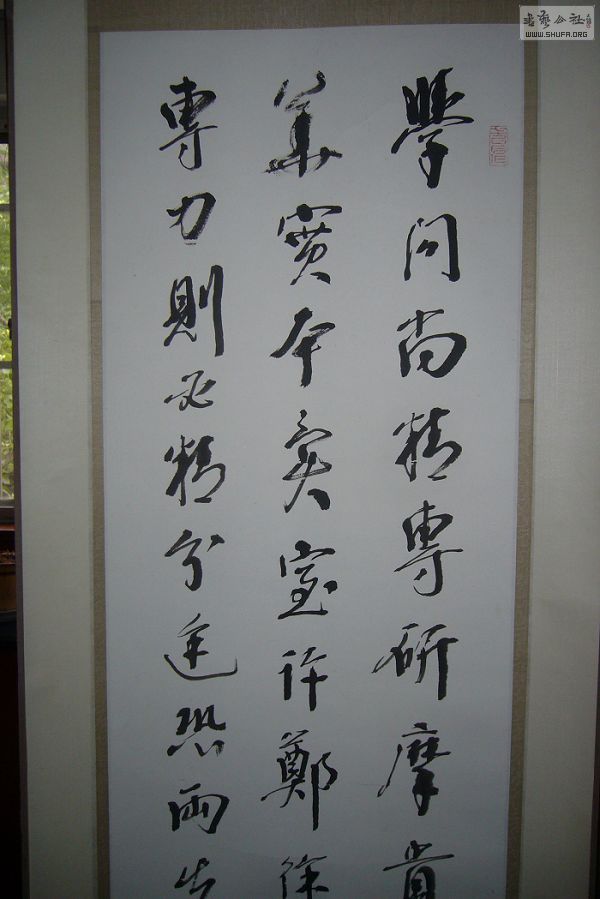 書藝公社
WWW.SHUFA.ORG
學問尚精專研摩貴
華實本異室許鄭徐
專力則必精分途恐兩失